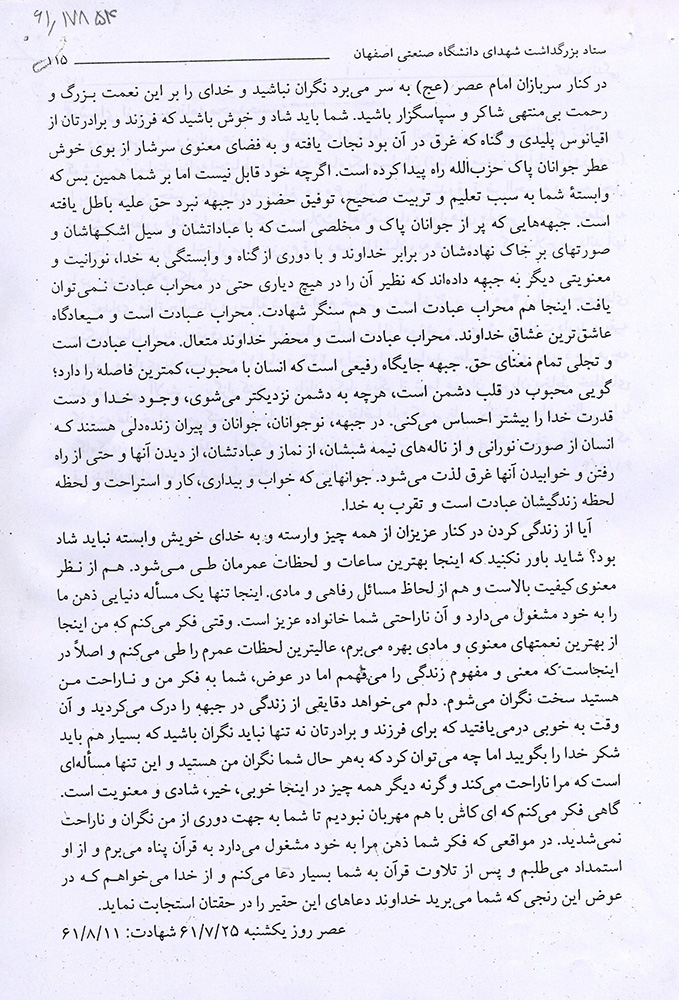 ۹۱٫۱۷۸۵۴
ستاد بزرگداشت شهدای دانشگاه صنعتی اصفهان ۱۱۵
در کنار سربازان امام عصر (عج) به سر می‌برد نگران نباشید و خدای را بر این نعمت بزرگ و
رحمت بی‌منتهی شاکر و سپاسگزار باشید. شما باید شاد و خوش باشید که فرزند و برادرتان از
اقیانوس پلیدی و گناه که غرق در آن بود نجات یافته و به فضای معنوی سرشار از بوی خوش
عطر جوانان پاک حزب‌الله راه پیدا کرده است. اگرچه خود قابل نیست اما بر شما همین بس که
وابستهٔ شما به سبب تعلیم و تربیت صحیح، توفیق حضور در جبهه نبرد حق علیه باطل یافته
است. جبهه‌هایی که پر از جوانان پاک و مخلصی است که با عباداتشان و سیل اشکهاشان و
صورتهای بر خاک نهاده‌شان در برابر خداوند و با دوری از گناه و وابستگی به خدا، نورانیت و
معنویتی دیگر به جبهه داده‌اند که نظیر آن را در هیچ دیاری حتی در محراب عبادت نمی‌توان
یافت. اینجا هم محراب عبادت است و هم سنگر شهادت. محراب عبادت است و میعادگاه
عاشق‌ترین عشاق خداوند. محراب عبادت است و محضر خداوند متعال. محراب عبادت است
و تجلی تمام معنای حق. جبهه جایگاه رفیعی است که انسان با محبوب، کمترین فاصله را دارد؛
گویی محبوب در قلب دشمن است، هرچه به دشمن نزدیکتر می‌شوی، وجود خدا و دست
قدرت خدا را بیشتر احساس می‌کنی. در جبهه، نوجوانان، جوانان و پیران زنده‌دلی هستند که
انسان از صورت نورانی و از ناله‌های نیمه شبشان، از نماز و عبادتشان، از دیدن آنها و حتی از راه
رفتن و خوابیدن آنها غرق لذت می‌شود. جوانهایی که خواب و بیداری، کار و استراحت و لحظه
لحظه زندگیشان عبادت است و تقرب به خدا.
آیا از زندگی کردن در کنار عزیزان از همه چیز وارسته و به خدای خویش وابسته نباید شاد
بود؟ شاید باور نکنید که اینجا بهترین ساعات و لحظات عمرمان طی می‌شود. هم از نظر
معنوی کیفیت بالاست و هم از لحاظ مسائل رفاهی و مادی. اینجا تنها یک مسأله دنیایی ذهن ما
را به خود مشغول می‌دارد و آن ناراحتی شما خانواده عزیز است. وقتی فکر می‌کنم که من اینجا
از بهترین نعمتهای معنوی و مادی بهره می‌برم، عالیترین لحظات عمرم را طی می‌کنم و اصلاً در
اینجاست که معنی و مفهوم زندگی را می‌فهمم اما در عوض، شما به فکر من و ناراحت من
هستید سخت نگران می‌شوم. دلم می‌خواهد دقایقی از زندگی در جبهه را درک می‌کردید و آن
وقت به خوبی درمی‌یافتید که برای فرزند و برادرتان نه تنها نباید نگران باشید که بسیار هم باید
شکر خدا را بگویید اما چه می‌توان کرد که به‌هر حال شما نگران من هستید و این تنها مسأله‌ای
است که مرا ناراحت می‌کند و گرنه دیگر همه چیز در اینجا خوبی، خیر، شادی و معنویت است.
گاهی فکر می‌کنم که ای کاش با هم مهربان نبودیم تا شما به جهت دوری از من نگران و ناراحت
نمی‌شدید. در مواقعی که فکر شما ذهن مرا به خود مشغول می‌دارد به قرآن پناه می‌برم و از او
استمداد می‌طلبم و پس از تلاوت قرآن به شما بسیار دعا می‌کنم و از خدا می‌خواهم که در
عوض این رنجی که شما می‌برید خداوند دعاهای این حقیر را در حقتان استجابت نماید.
عصر روز یکشنبه ۶۱/۷/۲۵ شهادت: ۶۱/۸/۱۱